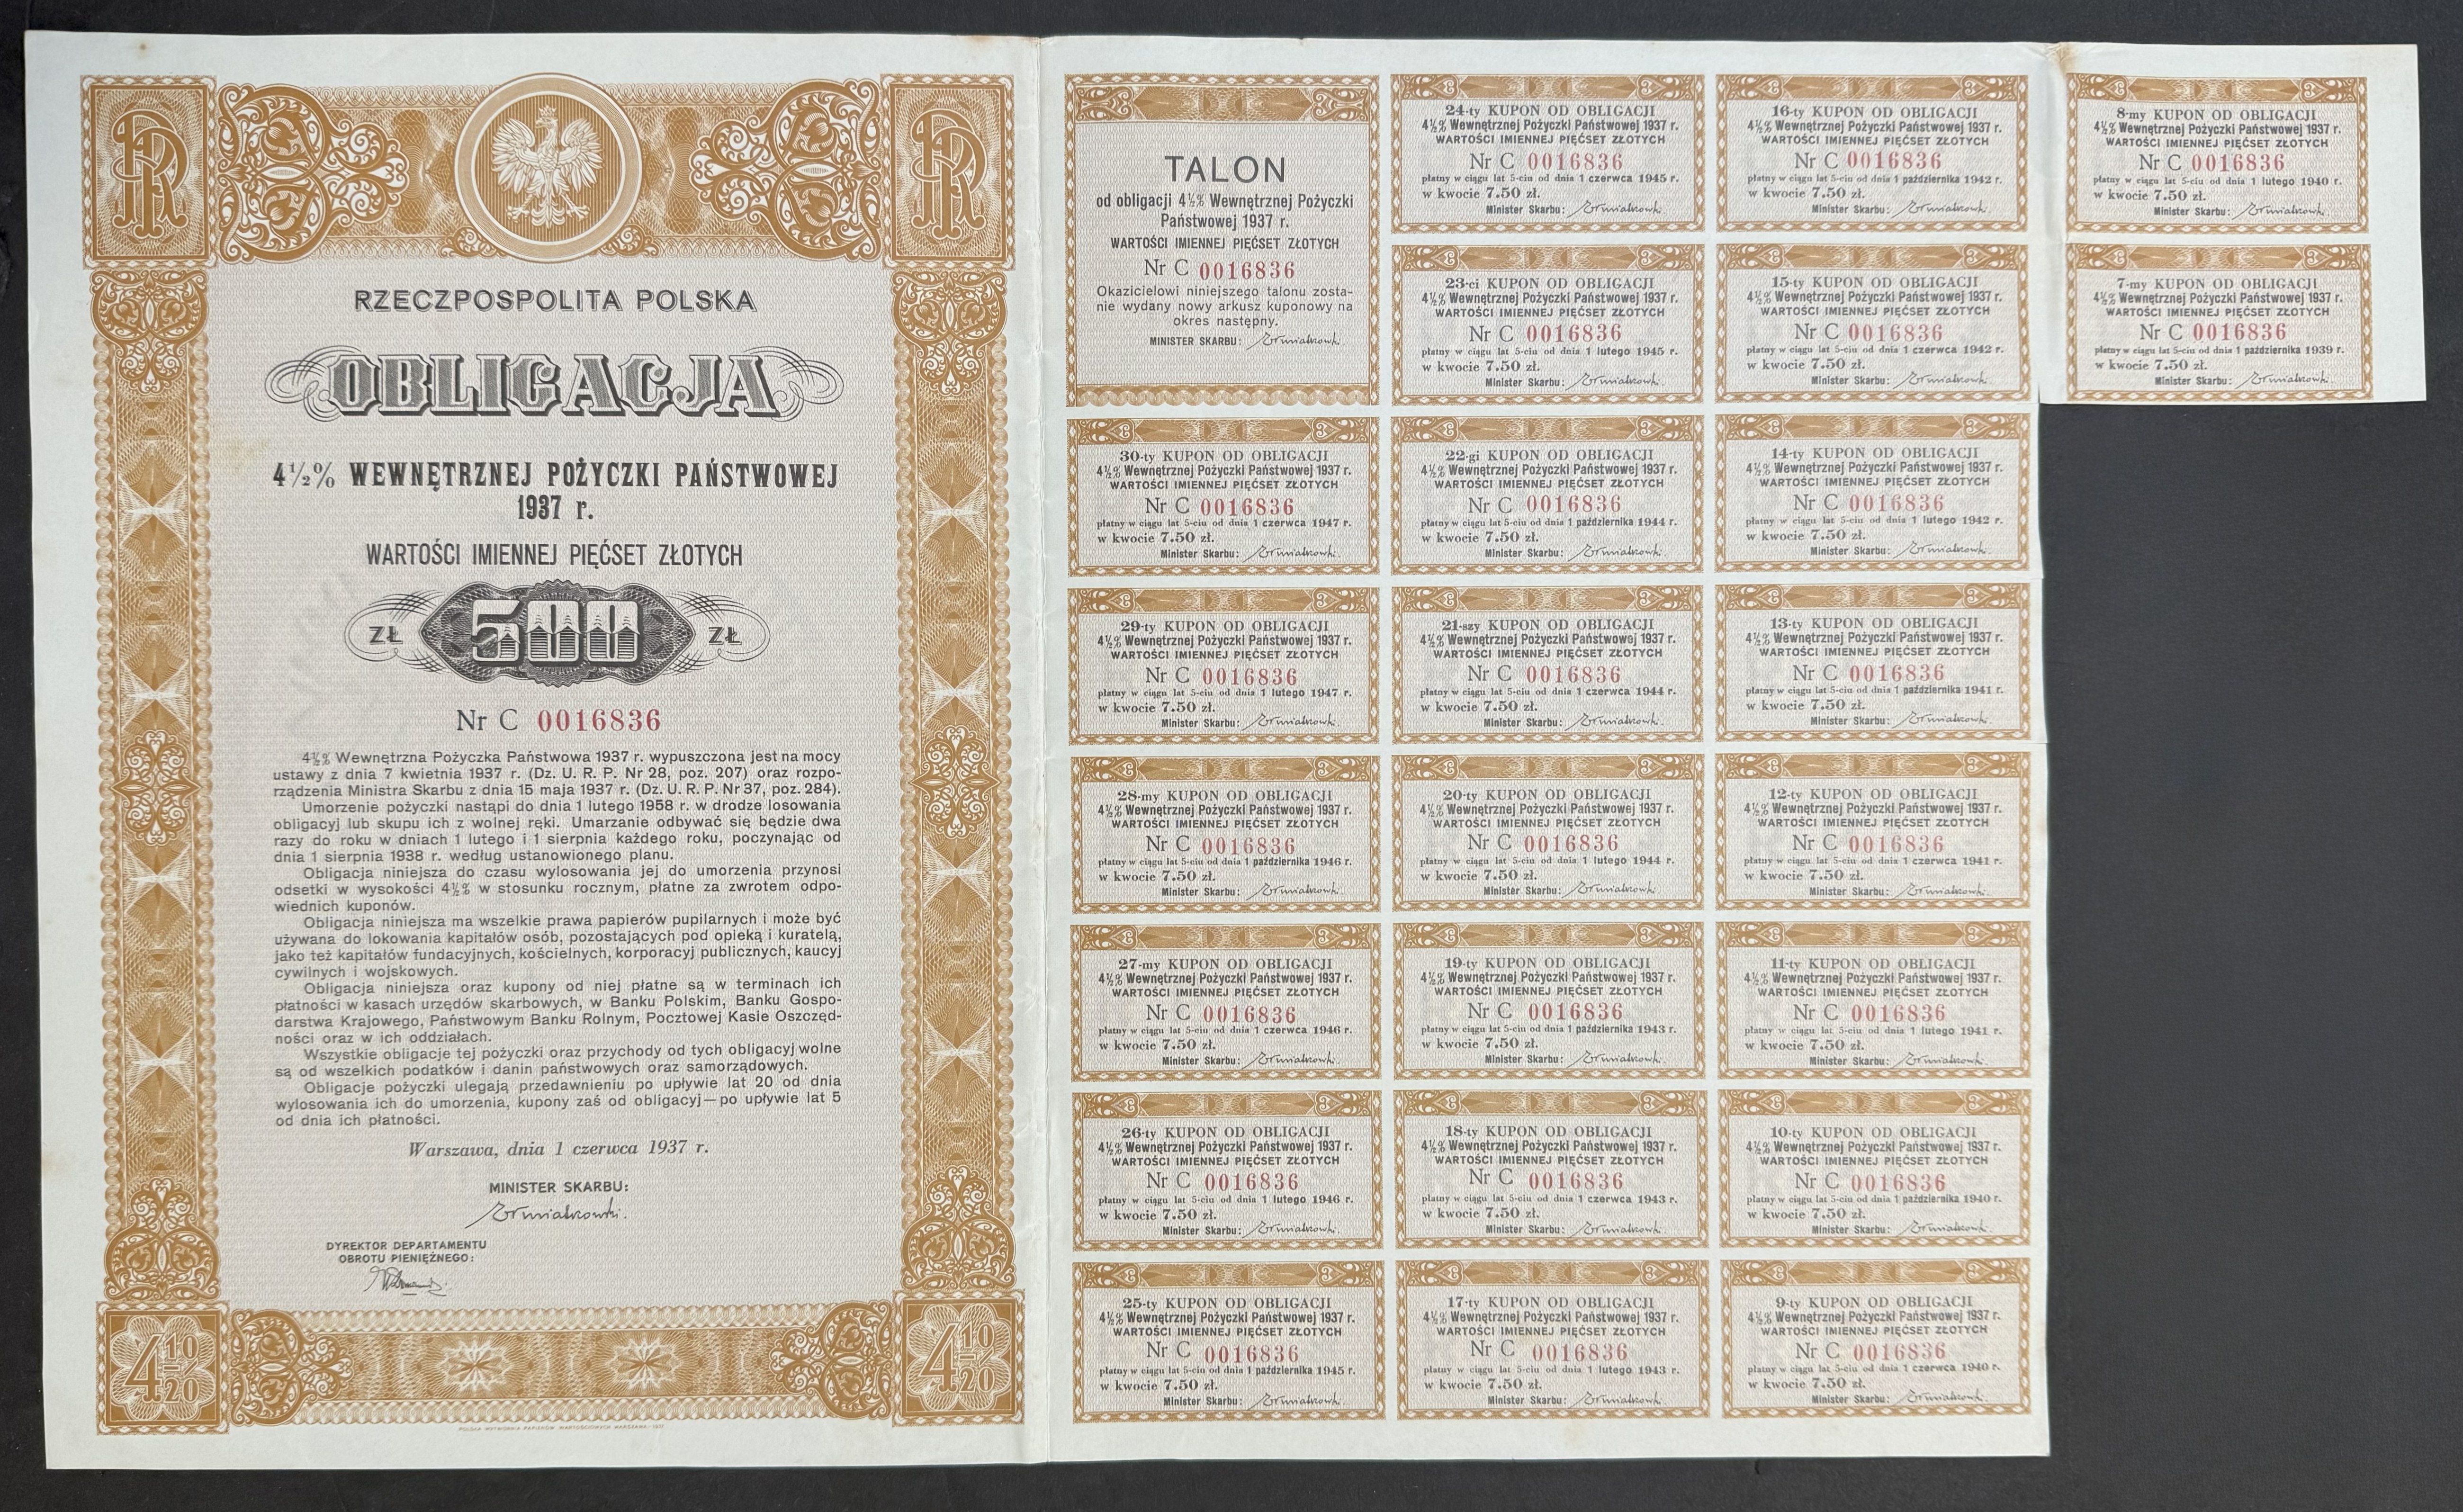 RZECZPOSPOLITA POLSKA
OBLIGACJA
4½% WEWNĘTRZNEJ POŻYCZKI PAŃSTWOWEJ
1937 r.
WARTOŚCI IMIENNEJ PIĘĆSET ZŁOTYCH
ZŁ 500 ZŁ
Nr C 0016836
4½% Wewnętrzna Pożyczka Państwowa 1937 r. wypuszczona jest na mocy
ustawy z dnia 7 kwietnia 1937 r. (Dz. U. R. P. Nr 28, poz. 207) oraz rozpo-
rządzenia Ministra Skarbu z dnia 15 maja 1937 r. (Dz. U. R. P. Nr 37, poz. 284).
Umorzenie pożyczki nastąpi do dnia 1 lutego 1958 r. w drodze losowania
obligacyj lub skupu ich z wolnej ręki. Umarzanie odbywać się będzie dwa
razy do roku w dniach 1 lutego i 1 sierpnia każdego roku, poczynając od
dnia 1 sierpnia 1938 r. według ustanowionego planu.
Obligacja niniejsza do czasu wylosowania jej do umorzenia przynosi
odsetki w wysokości 4½% w stosunku rocznym, płatne za zwrotem odpo-
wiednich kuponów.
Obligacja niniejsza ma wszelkie prawa papierów pupilarnych i może być
używana do lokowania kapitałów osób, pozostających pod opieką i kuratelą,
jako też kapitałów fundacyjnych, kościelnych, korporacyj publicznych, kaucyj
cywilnych i wojskowych.
Obligacja niniejsza oraz kupony od niej płatne są w terminach ich
płatności w kasach urzędów skarbowych, w Banku Polskim, Banku Gospo-
darstwa Krajowego, Państwowym Banku Rolnym, Pocztowej Kasie Oszczęd-
ności oraz w ich oddziałach.
Wszystkie obligacje tej pożyczki oraz przychody od tych obligacyj wolne
są od wszelkich podatków i danin państwowych oraz samorządowych.
Obligacje pożyczki ulegają przedawnieniu po upływie lat 20 od dnia
wylosowania ich do umorzenia, kupony zaś od obligacyj—po upływie lat 5
od dnia ich płatności.
Warszawa, dnia 1 czerwca 1937 r.
MINISTER SKARBU:
DYREKTOR DEPARTAMENTU
OBROTU PIENIĘŻNEGO:
4 10/20
4 10/20
POLSKA WYTWÓRNIA PAPIERÓW WARTOŚCIOWYCH WARSZAWA-1937
TALON
od obligacji 4½% Wewnętrznej Pożyczki
Państwowej 1937 r.
WARTOŚCI IMIENNEJ PIĘĆSET ZŁOTYCH
Nr C 0016836
Okazicielowi niniejszego talonu zosta-
nie wydany nowy arkusz kuponowy na
okres następny.
MINISTER SKARBU:
30-ty KUPON OD OBLIGACJI
4½% Wewnętrznej Pożyczki Państwowej 1937 r.
WARTOŚCI IMIENNEJ PIĘĆSET ZŁOTYCH
Nr C 0016836
płatny w ciągu lat 5-ciu od dnia 1 czerwca 1947 r.
w kwocie 7.50 zł.
Minister Skarbu:
29-ty KUPON OD OBLIGACJI
4½% Wewnętrznej Pożyczki Państwowej 1937 r.
WARTOŚCI IMIENNEJ PIĘĆSET ZŁOTYCH
Nr C 0016836
płatny w ciągu lat 5-ciu od dnia 1 lutego 1947 r.
w kwocie 7.50 zł.
Minister Skarbu:
28-my KUPON OD OBLIGACJI
4½% Wewnętrznej Pożyczki Państwowej 1937 r.
WARTOŚCI IMIENNEJ PIĘĆSET ZŁOTYCH
Nr C 0016836
płatny w ciągu lat 5-ciu od dnia 1 października 1946 r.
w kwocie 7.50 zł.
Minister Skarbu:
27-my KUPON OD OBLIGACJI
4½% Wewnętrznej Pożyczki Państwowej 1937 r.
WARTOŚCI IMIENNEJ PIĘĆSET ZŁOTYCH
Nr C 0016836
płatny w ciągu lat 5-ciu od dnia 1 czerwca 1946 r.
w kwocie 7.50 zł.
Minister Skarbu:
26-ty KUPON OD OBLIGACJI
4½% Wewnętrznej Pożyczki Państwowej 1937 r.
WARTOŚCI IMIENNEJ PIĘĆSET ZŁOTYCH
Nr C 0016836
płatny w ciągu lat 5-ciu od dnia 1 lutego 1946 r.
w kwocie 7.50 zł.
Minister Skarbu:
25-ty KUPON OD OBLIGACJI
4½% Wewnętrznej Pożyczki Państwowej 1937 r.
WARTOŚCI IMIENNEJ PIĘĆSET ZŁOTYCH
Nr C 0016836
płatny w ciągu lat 5-ciu od dnia 1 października 1945 r.
w kwocie 7.50 zł.
Minister Skarbu:
24-ty KUPON OD OBLIGACJI
4½% Wewnętrznej Pożyczki Państwowej 1937 r.
WARTOŚCI IMIENNEJ PIĘĆSET ZŁOTYCH
Nr C 0016836
płatny w ciągu lat 5-ciu od dnia 1 czerwca 1945 r.
w kwocie 7.50 zł.
Minister Skarbu:
23-ci KUPON OD OBLIGACJI
4½% Wewnętrznej Pożyczki Państwowej 1937 r.
WARTOŚCI IMIENNEJ PIĘĆSET ZŁOTYCH
Nr C 0016836
płatny w ciągu lat 5-ciu od dnia 1 lutego 1945 r.
w kwocie 7.50 zł.
Minister Skarbu:
22-gi KUPON OD OBLIGACJI
4½% Wewnętrznej Pożyczki Państwowej 1937 r.
WARTOŚCI IMIENNEJ PIĘĆSET ZŁOTYCH
Nr C 0016836
płatny w ciągu lat 5-ciu od dnia 1 października 1944 r.
w kwocie 7.50 zł.
Minister Skarbu:
21-szy KUPON OD OBLIGACJI
4½% Wewnętrznej Pożyczki Państwowej 1937 r.
WARTOŚCI IMIENNEJ PIĘĆSET ZŁOTYCH
Nr C 0016836
płatny w ciągu lat 5-ciu od dnia 1 czerwca 1944 r.
w kwocie 7.50 zł.
Minister Skarbu:
20-ty KUPON OD OBLIGACJI
4½% Wewnętrznej Pożyczki Państwowej 1937 r.
WARTOŚCI IMIENNEJ PIĘĆSET ZŁOTYCH
Nr C 0016836
płatny w ciągu lat 5-ciu od dnia 1 lutego 1944 r.
w kwocie 7.50 zł.
Minister Skarbu:
19-ty KUPON OD OBLIGACJI
4½% Wewnętrznej Pożyczki Państwowej 1937 r.
WARTOŚCI IMIENNEJ PIĘĆSET ZŁOTYCH
Nr C 0016836
płatny w ciągu lat 5-ciu od dnia 1 października 1943 r.
w kwocie 7.50 zł.
Minister Skarbu:
18-ty KUPON OD OBLIGACJI
4½% Wewnętrznej Pożyczki Państwowej 1937 r.
WARTOŚCI IMIENNEJ PIĘĆSET ZŁOTYCH
Nr C 0016836
płatny w ciągu lat 5-ciu od dnia 1 czerwca 1943 r.
w kwocie 7.50 zł.
Minister Skarbu:
17-ty KUPON OD OBLIGACJI
4½% Wewnętrznej Pożyczki Państwowej 1937 r.
WARTOŚCI IMIENNEJ PIĘĆSET ZŁOTYCH
Nr C 0016836
płatny w ciągu lat 5-ciu od dnia 1 lutego 1943 r.
w kwocie 7.50 zł.
Minister Skarbu:
16-ty KUPON OD OBLIGACJI
4½% Wewnętrznej Pożyczki Państwowej 1937 r.
WARTOŚCI IMIENNEJ PIĘĆSET ZŁOTYCH
Nr C 0016836
płatny w ciągu lat 5-ciu od dnia 1 października 1942 r.
w kwocie 7.50 zł.
Minister Skarbu:
15-ty KUPON OD OBLIGACJI
4½% Wewnętrznej Pożyczki Państwowej 1937 r.
WARTOŚCI IMIENNEJ PIĘĆSET ZŁOTYCH
Nr C 0016836
płatny w ciągu lat 5-ciu od dnia 1 czerwca 1942 r.
w kwocie 7.50 zł.
Minister Skarbu:
14-ty KUPON OD OBLIGACJI
4½% Wewnętrznej Pożyczki Państwowej 1937 r.
WARTOŚCI IMIENNEJ PIĘĆSET ZŁOTYCH
Nr C 0016836
płatny w ciągu lat 5-ciu od dnia 1 lutego 1942 r.
w kwocie 7.50 zł.
Minister Skarbu:
13-ty KUPON OD OBLIGACJI
4½% Wewnętrznej Pożyczki Państwowej 1937 r.
WARTOŚCI IMIENNEJ PIĘĆSET ZŁOTYCH
Nr C 0016836
płatny w ciągu lat 5-ciu od dnia 1 października 1941 r.
w kwocie 7.50 zł.
Minister Skarbu:
12-ty KUPON OD OBLIGACJI
4½% Wewnętrznej Pożyczki Państwowej 1937 r.
WARTOŚCI IMIENNEJ PIĘĆSET ZŁOTYCH
Nr C 0016836
płatny w ciągu lat 5-ciu od dnia 1 czerwca 1941 r.
w kwocie 7.50 zł.
Minister Skarbu:
11-ty KUPON OD OBLIGACJI
4½% Wewnętrznej Pożyczki Państwowej 1937 r.
WARTOŚCI IMIENNEJ PIĘĆSET ZŁOTYCH
Nr C 0016836
płatny w ciągu lat 5-ciu od dnia 1 lutego 1941 r.
w kwocie 7.50 zł.
Minister Skarbu:
10-ty KUPON OD OBLIGACJI
4½% Wewnętrznej Pożyczki Państwowej 1937 r.
WARTOŚCI IMIENNEJ PIĘĆSET ZŁOTYCH
Nr C 0016836
płatny w ciągu lat 5-ciu od dnia 1 października 1940 r.
w kwocie 7.50 zł.
Minister Skarbu:
9-ty KUPON OD OBLIGACJI
4½% Wewnętrznej Pożyczki Państwowej 1937 r.
WARTOŚCI IMIENNEJ PIĘĆSET ZŁOTYCH
Nr C 0016836
płatny w ciągu lat 5-ciu od dnia 1 czerwca 1940 r.
w kwocie 7.50 zł.
Minister Skarbu:
8-my KUPON OD OBLIGACJI
4½% Wewnętrznej Pożyczki Państwowej 1937 r.
WARTOŚCI IMIENNEJ PIĘĆSET ZŁOTYCH
Nr C 0016836
płatny w ciągu lat 5-ciu od dnia 1 lutego 1940 r.
w kwocie 7.50 zł.
Minister Skarbu:
7-my KUPON OD OBLIGACJI
4½% Wewnętrznej Pożyczki Państwowej 1937 r.
WARTOŚCI IMIENNEJ PIĘĆSET ZŁOTYCH
Nr C 0016836
płatny w ciągu lat 5-ciu od dnia 1 października 1939 r.
w kwocie 7.50 zł.
Minister Skarbu: